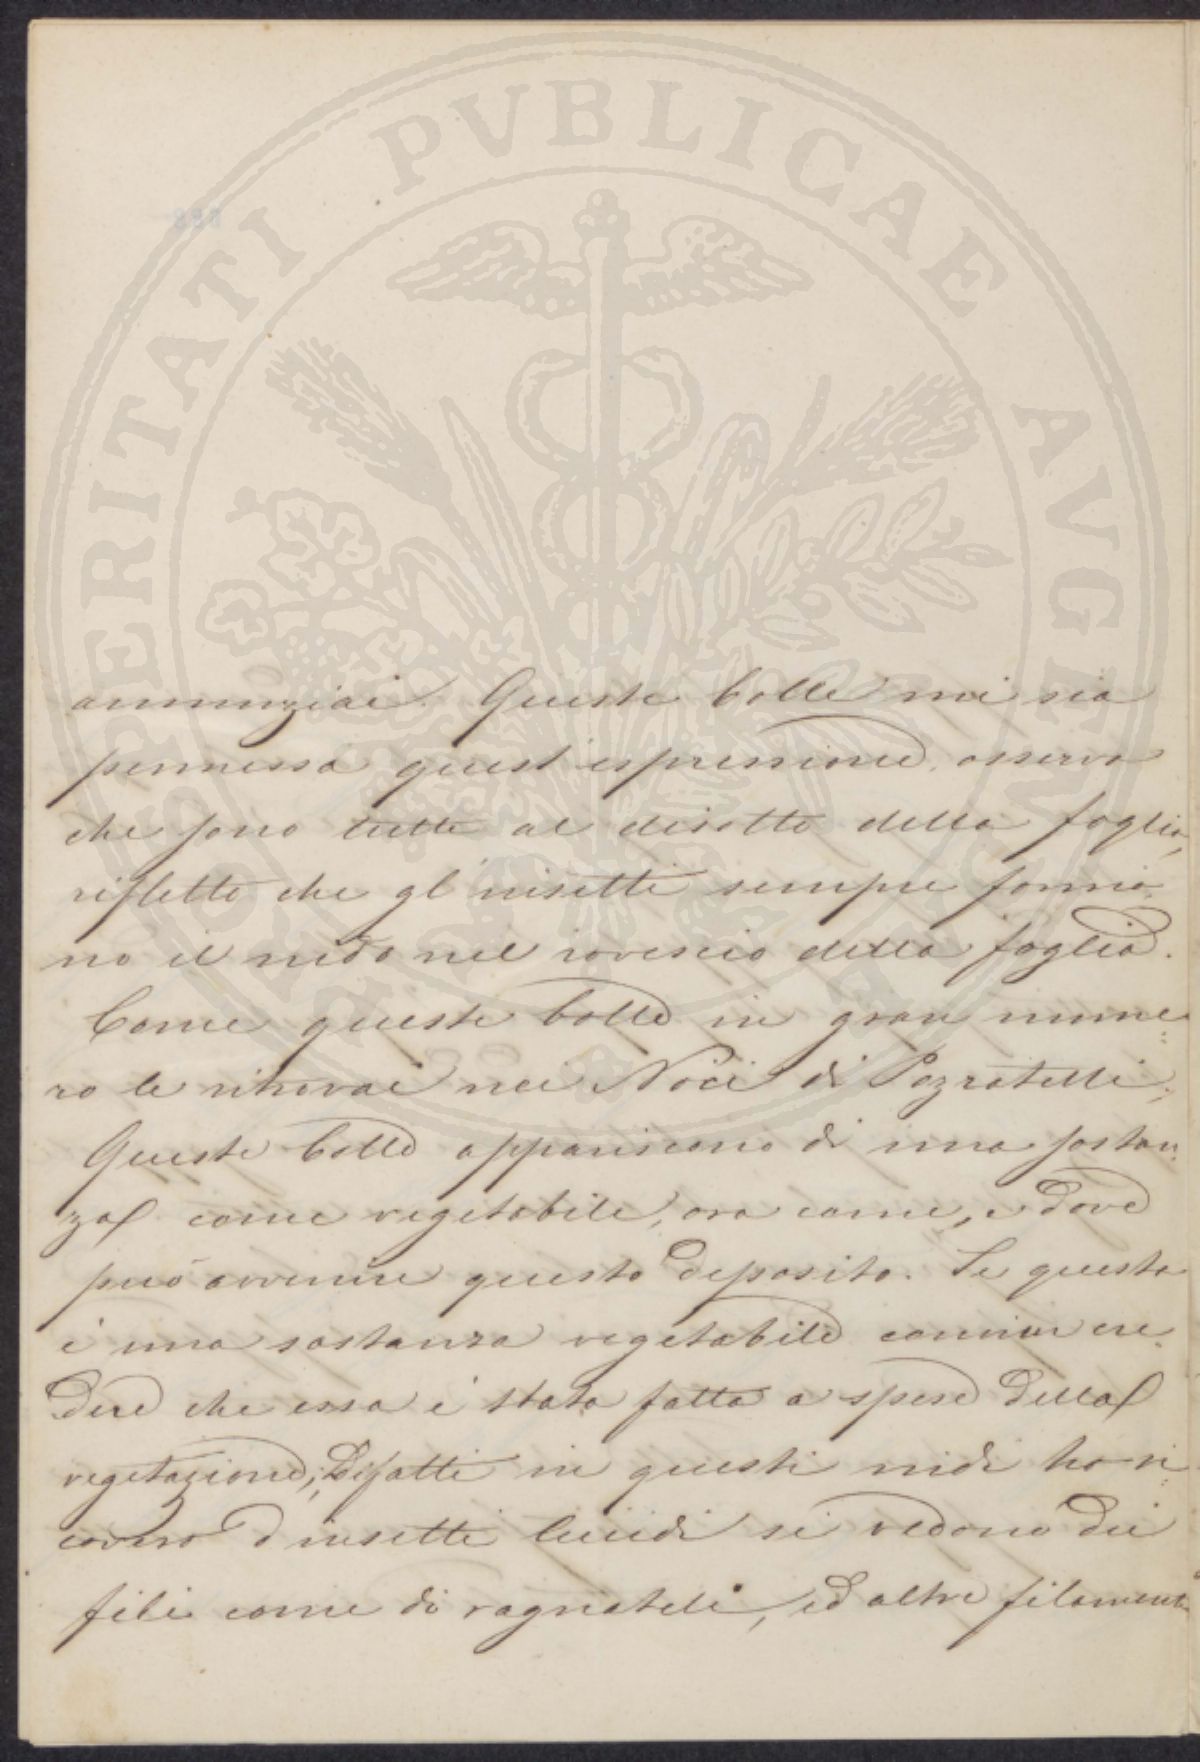 PROSPERITATI PVBLICAE AVGENDAE
annunziai. Queste bolle mi sia
permessa quest'espressione, osservo
che sono tutte al disotto della foglia,
rifletto che gl'insetti sempre forma
no il nido nel rovescio della foglia.
Come queste bolle in gran nume=
ro le ritrovai nei Noci di Pozzatelli;
Queste bolle appariscono di una sostan=
za come vegetabile, ora come, e dove
può avvenire questo deposito. Se questa
è una sostanza vegetabile convien cre=
dere che essa è stata fatta a spese della
vegetazione; Difatti in questi nidi ho ri=
covero d'insetti lucidi si vedono dei
fili come di ragnateli, ed altri filamenti